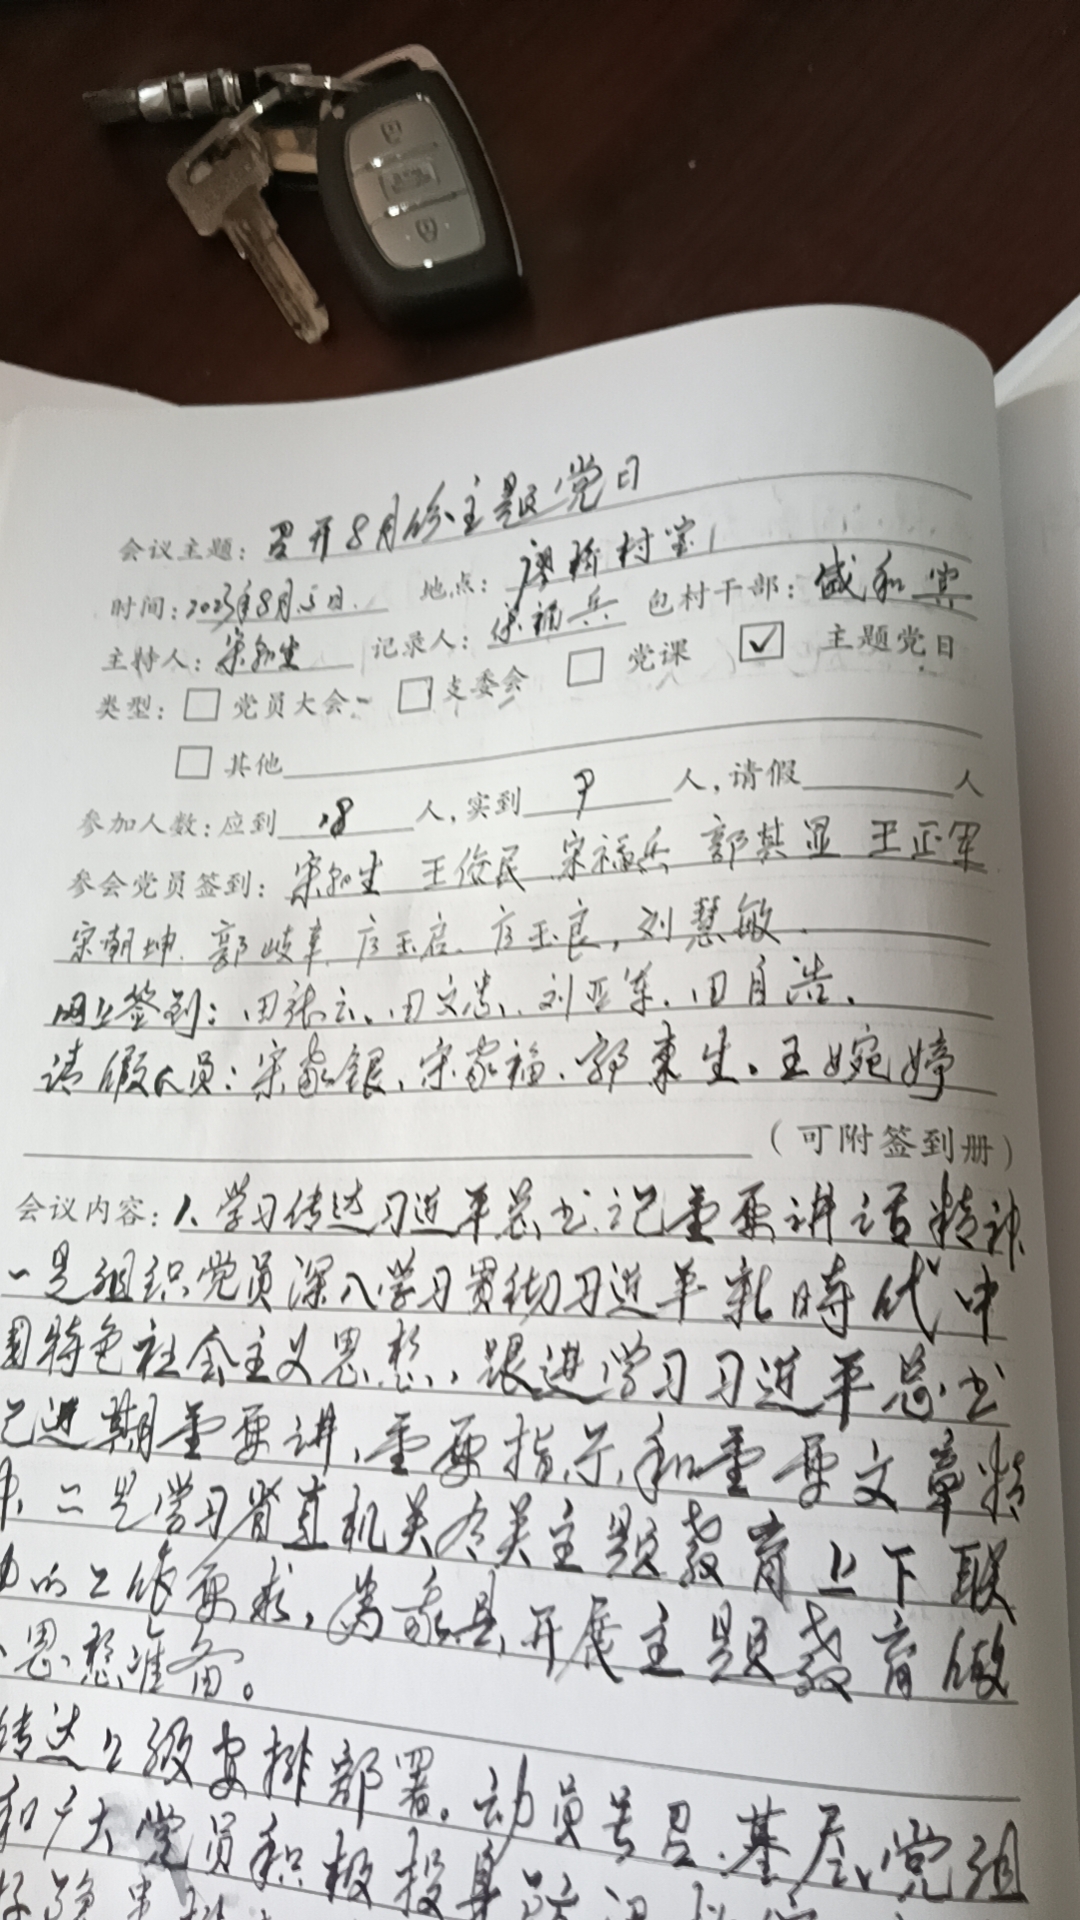 会议主题: 召开8月份主题党日
时间: 2023年8月5日 地点: 廖桥村室
主持人: 宋 记录人: 宋福兵 包村干部: 盛和
类型: 党员大会 支委会 党课 ✓ 主题党日
其他
参加人数: 应到 18 人,实到 人,请假 人
参会党员签到: 宋 王俊民 宋福兵 郭其显 王正军
宋朝坤 郭岐 玉启 玉良, 刘慧敏
网上签到: 田张云、田文 刘亚军、田自浩、
请假人员: 宋家银、宋家福、郭東生、王婉婷
(可附签到册)
会议内容: 1、学习传达习近平总书记重要讲话精神
一是组织党员深入学习贯彻习近平新時代中
国特色社会主义思想、跟进学习习近平总书
记近期重要讲、重要指示、和重要文章精
神、二是学习省直机关有关主题教育上下联
动的工作要求,为我县开展主题教育做
思想准备。
传达上级安排部署。动员号召、基层党组
和广大党员积极投身